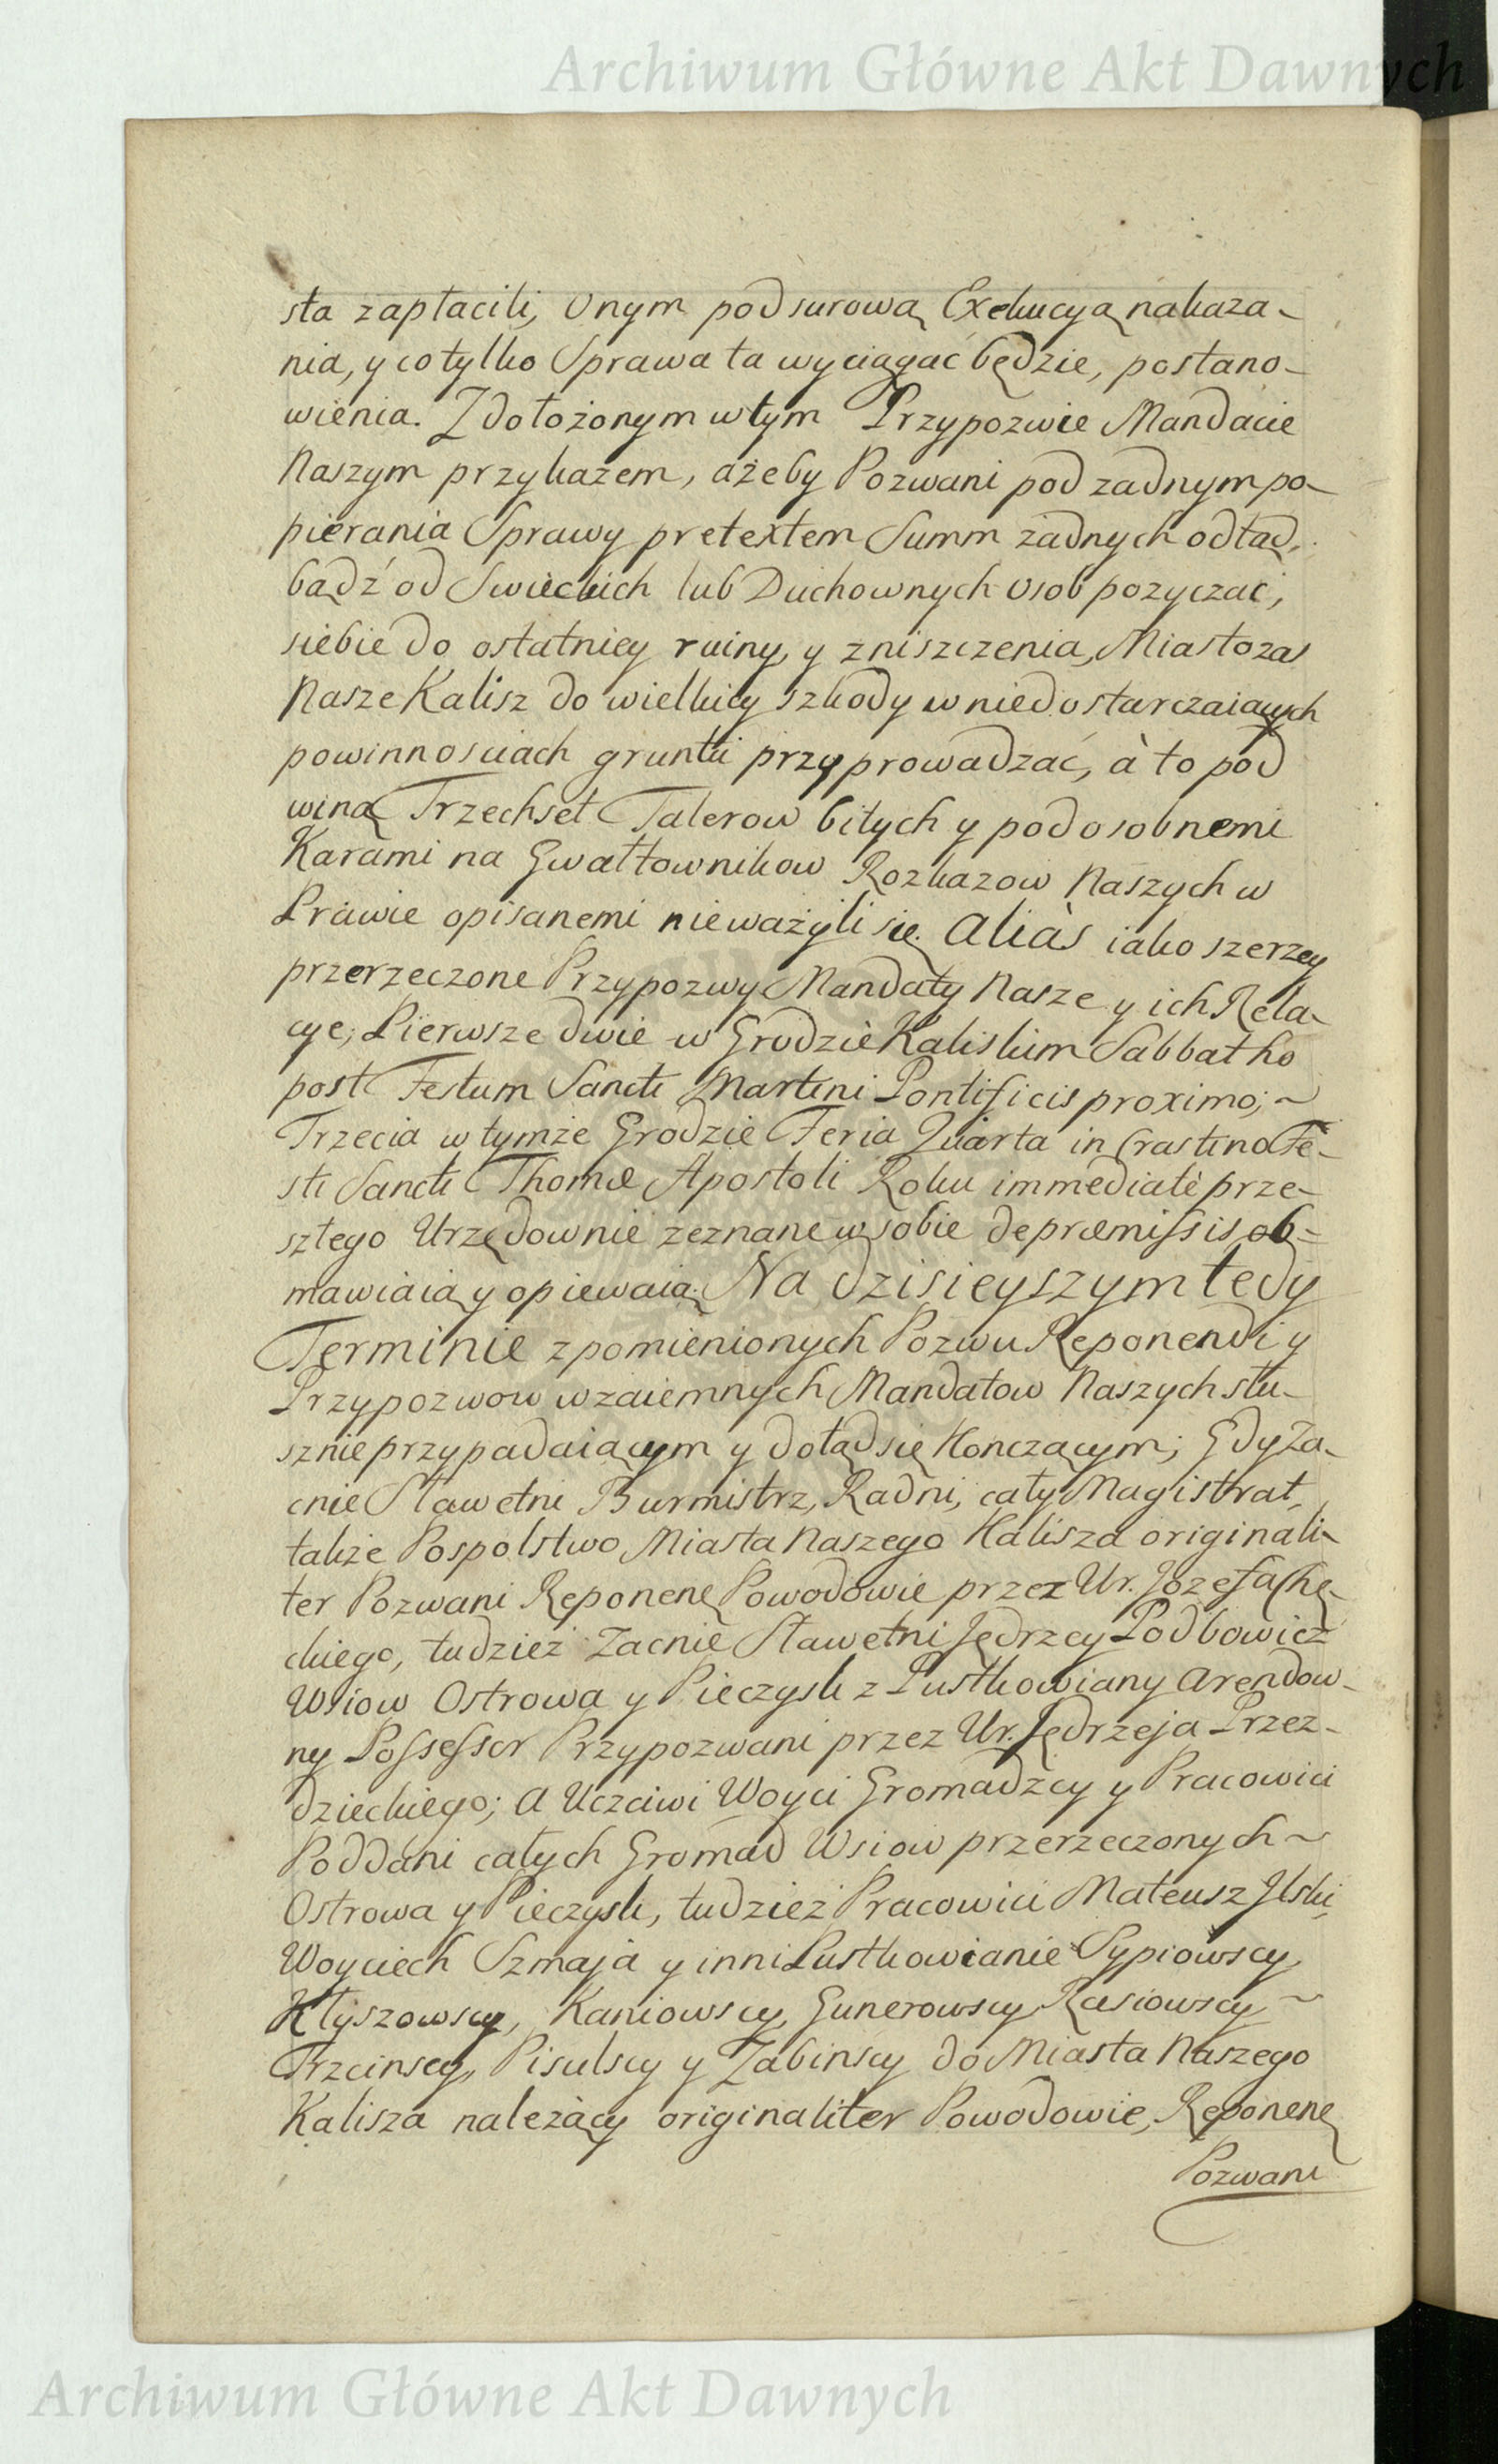 Archiwum Główne Akt Dawnych
sta zapłacili, Onym pod surową Exekucyą nakaza-
nia, y co tylko Sprawa ta wyciągać będzie, postano-
wienia. Z dołożonym w tym Przypozwie Mandacie
Naszym przykazem, ażeby Pozwani pod żadnym po-
pierania Sprawy pretextem Summ żadnych odtąd,
bądź od Swieckich lub Duchownych osob pozyczać,
siebie do ostatniey ruiny, y zniszczenia, Miasto zas
Nasze Kalisz do wielkiey szkody w niedostarczaiących
powinnosciach gruntu przyprowadzać, à to pod
winą Trzechset Talerow bitych y pod osobnemi
Karami na Gwałtownikow Rozkazow Naszych w
Prawie opisanemi nieważyli się. Aliàs iako szerzey
przerzeczone Przypozwy Mandaty Nasze y ich Rela-
cye; Pierwsze dwie w Grodzie Kaliskim Sabbatho
post Festum Sancti Martini Pontificis proximo; ~
Trzecia w tymże Grodzie Feria Quarta in Crastino Fe-
sti Sancti Thomæ Apostoli Roku immediatè prze-
szłego Urzędownie zeznane w sobie de præmissis ob=
mawiaią y opiewaią. Na dzisieyszym tedy
Terminie z pomienionych Pozwu Reponendi y
Przypozwow wzaiemnych Mandatow Naszych słu-
sznie przypadaiącym y dotąd się Konczącym; Gdy Za-
cnie Sławetni Burmistrz, Radni, cały Magistrat,
także Pospolstwo Miasta Naszego Kalisza originali-
ter Pozwani Reponenę Powodowie przez Ur. Jozefa Chę-
ckiego, tudzież Zacnie Sławetni Jędrzey Podbowicz
Wsiow Ostrowa y Pieczysk z Pustkowiany Arendow-
ny Possessor Przypozwani przez Ur. Jędrzeja Przez-
dzieckiego; A Uczciwi Woyci Gromadzcy y Pracowici
Poddani całych Gromad Wsiow przerzeczonych ~
Ostrowa y Pieczysk, tudzież Pracowici Mateusz Ilski,
Woyciech Szmaja y inni Pustkowianie Sypiowscy,
Kłyszowscy, Kaniowscy, Gunerowscy, Rasiowscy ~
Trzcinscy, Pisulscy y Zabinscy do Miasta Naszego
Kalisza należący originaliter Powodowie, Reponenę
Pozwani
Archiwum Główne Akt Dawnych